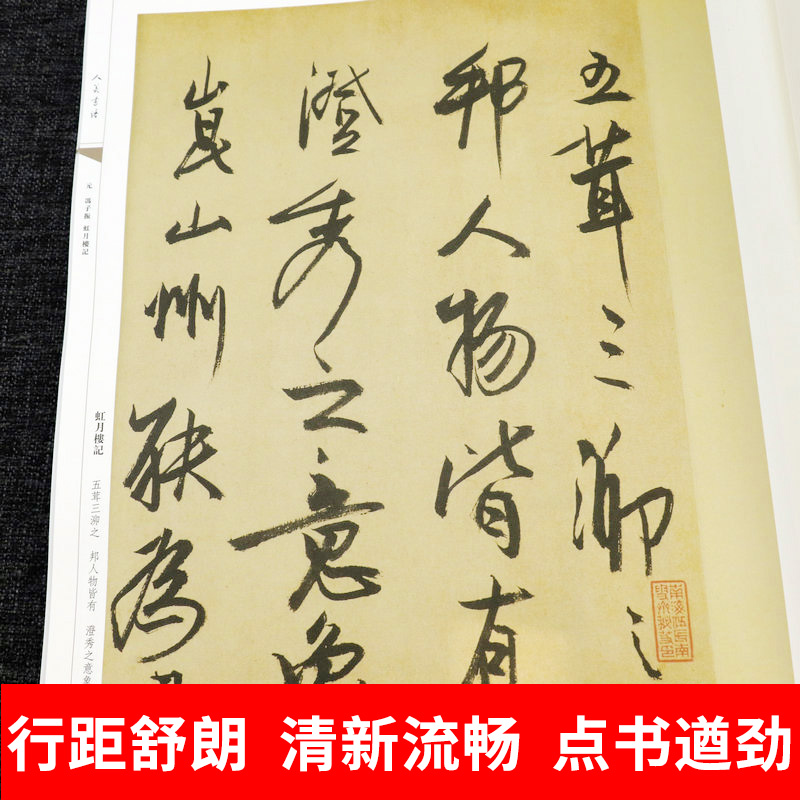 五茸三泖之
邦人物皆有
澄秀之意象
崑山州為
元 馮子振 虹月樓記
虹月樓記 五茸三泖之 邦人物皆有 澄秀之意象
行距舒朗 清新流畅 点书遒劲